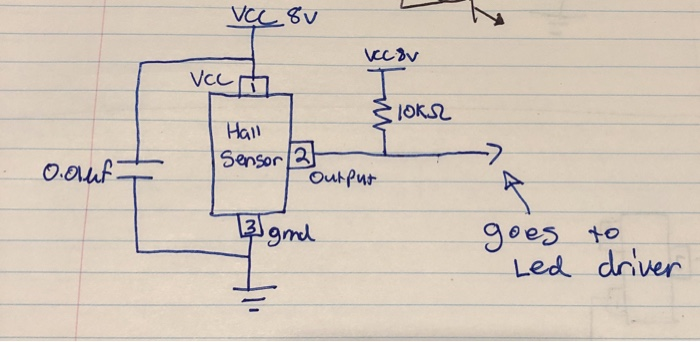 VCC 8V
VCC 8V
VCC
1
10KΩ
Hall
Sensor
2
0.01uf
Output
3
gnd
goes to
Led driver